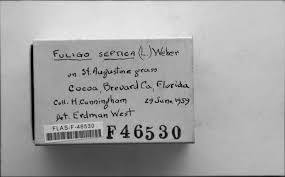 FULIGO SEPTICA (L) Weber
on St. Augustine grass
Cocoa, Brevard Co, Florida
Coll. H. Cunningham 29 June 1959
Det. Erdman West
FLAS-F-46530
F46530